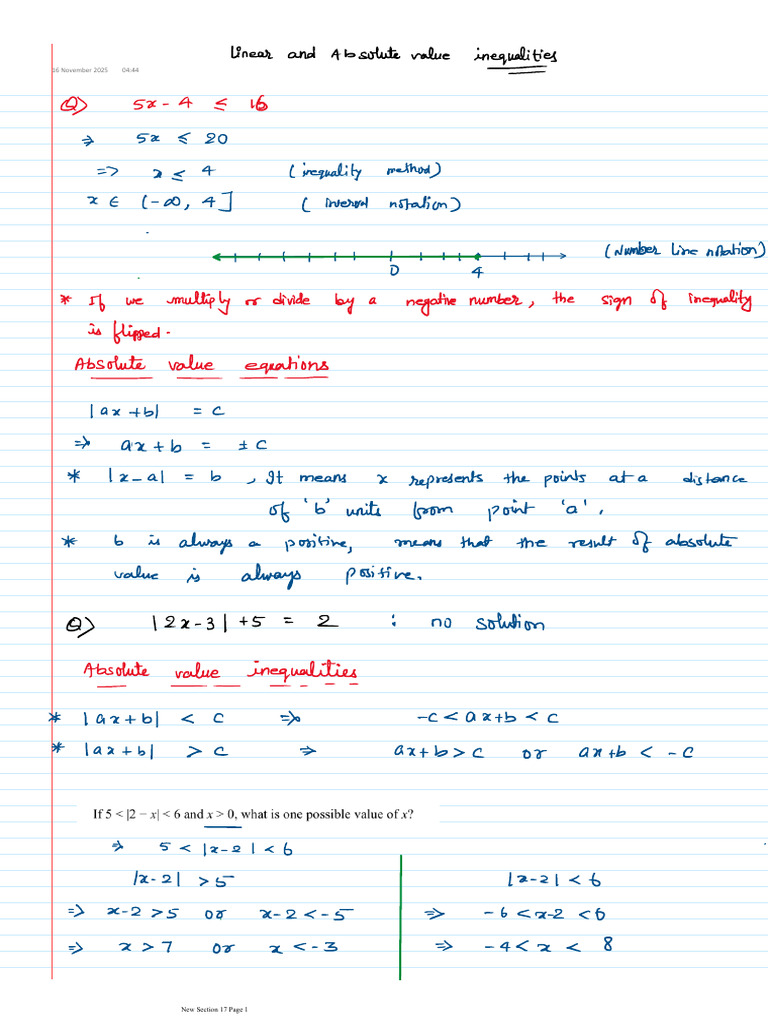 Linear and Absolute value inequalities
16 November 2025 04:44
Q) 5x - 4 ≤ 16
⇒ 5x ≤ 20
⇒ x ≤ 4 (inequality method)
x ∈ (-∞, 4] (interval notation)
(Number line notation)
0 4
* If we multiply or divide by a negative number, the sign of inequality
is flipped.
Absolute value equations
|ax+b| = c
⇒ ax+b = ±c
* |x-a| = b, It means x represents the points at a distance
of 'b' units from point 'a'.
* b is always a positive, means that the result of absolute
value is always positive.
Q) |2x-3| +5 = 2 : no solution
Absolute value inequalities
* |ax+b| < c ⇒ -c < ax+b < c
* |ax+b| > c ⇒ ax+b > c or ax+b < -c
If 5 < |2 − x| < 6 and x > 0, what is one possible value of x?
⇒ 5 < |x-2| < 6
|x-2| > 5
⇒ x-2 > 5 or x-2 < -5
⇒ x > 7 or x < -3
|x-2| < 6
⇒ -6 < x-2 < 6
⇒ -4 < x < 8
New Section 17 Page 1